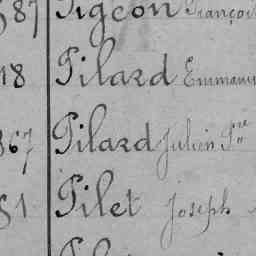 87 Pigeon François
18 Pilard Emmanu
367 Pilard Julien Prre
51 Pilet Joseph